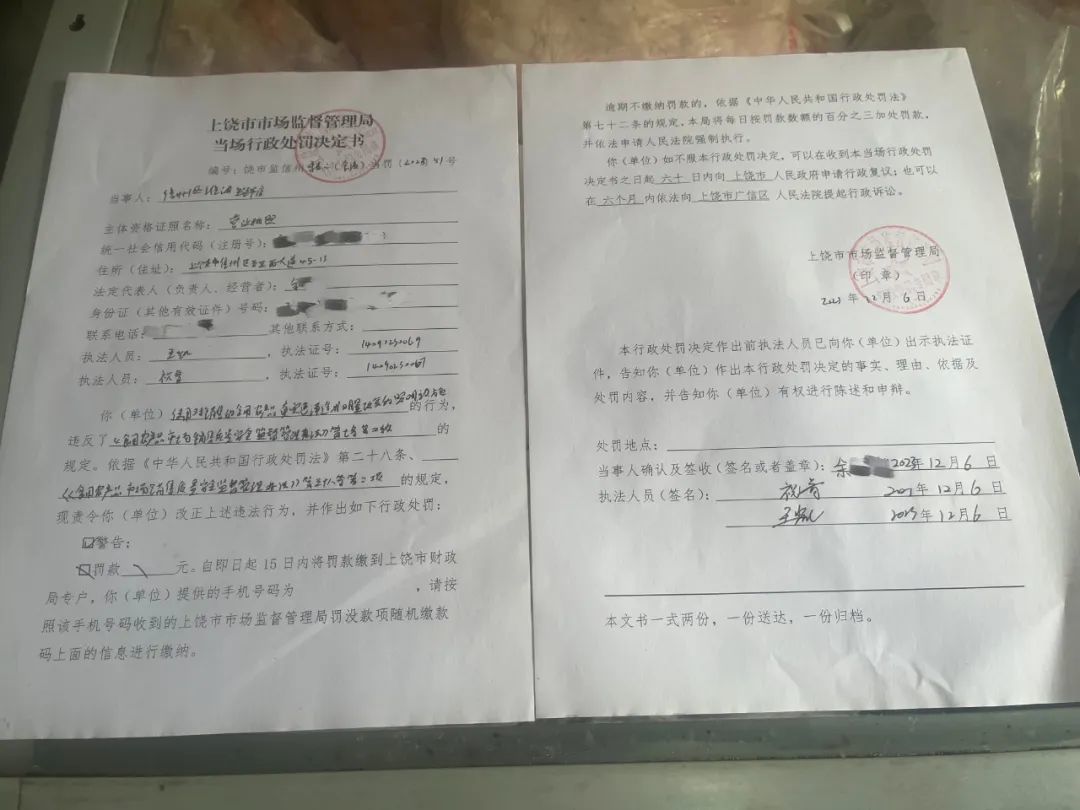 上饶市市场监督管理局
当场行政处罚决定书
编号：饶市监信州 当罚〔2023〕41号
当事人：
主体资格证照名称：营业执照
统一社会信用代码（注册号）：
住所（住址）：上饶市信州区 大道45-13
法定代表人（负责人、经营者）：余
身份证（其他有效证件）号码：
联系电话： 其他联系方式：
执法人员： ，执法证号：14090250069
执法人员： ，执法证号：
你（单位） 的行为，
违反了《食用农产品市场销售质量安全监督管理办法》第七条第二款 的
规定。依据《中华人民共和国行政处罚法》第二十八条、
《食用农产品市场销售质量安全监督管理办法》 的规定，
现责令你（单位）改正上述违法行为，并作出如下行政处罚：
☑警告；
罚款 元。自即日起15日内将罚款缴到上饶市财政
局专户，你（单位）提供的手机号码为 ，请按
照该手机号码收到的上饶市市场监督管理局罚没款项随机缴款
码上面的信息进行缴纳。
逾期不缴纳罚款的，依据《中华人民共和国行政处罚法》
第七十二条的规定，本局将每日按罚款数额的百分之三加处罚款，
并依法申请人民法院强制执行。
你（单位）如不服本行政处罚决定，可以在收到本当场行政处罚
决定书之日起 六十 日内向 上饶市 人民政府申请行政复议；也可以
在 六个月 内依法向 上饶市广信区 人民法院提起行政诉讼。
上饶市市场监督管理局
（印 章）
2023年12月6日
本行政处罚决定作出前执法人员已向你（单位）出示执法证
件，告知你（单位）作出本行政处罚决定的事实、理由、依据及
处罚内容，并告知你（单位）有权进行陈述和申辩。
处罚地点：
当事人确认及签收（签名或者盖章）：余 2023年12月6日
执法人员（签名）： 2023年12月6日
2023年12月6日
本文书一式两份，一份送达，一份归档。